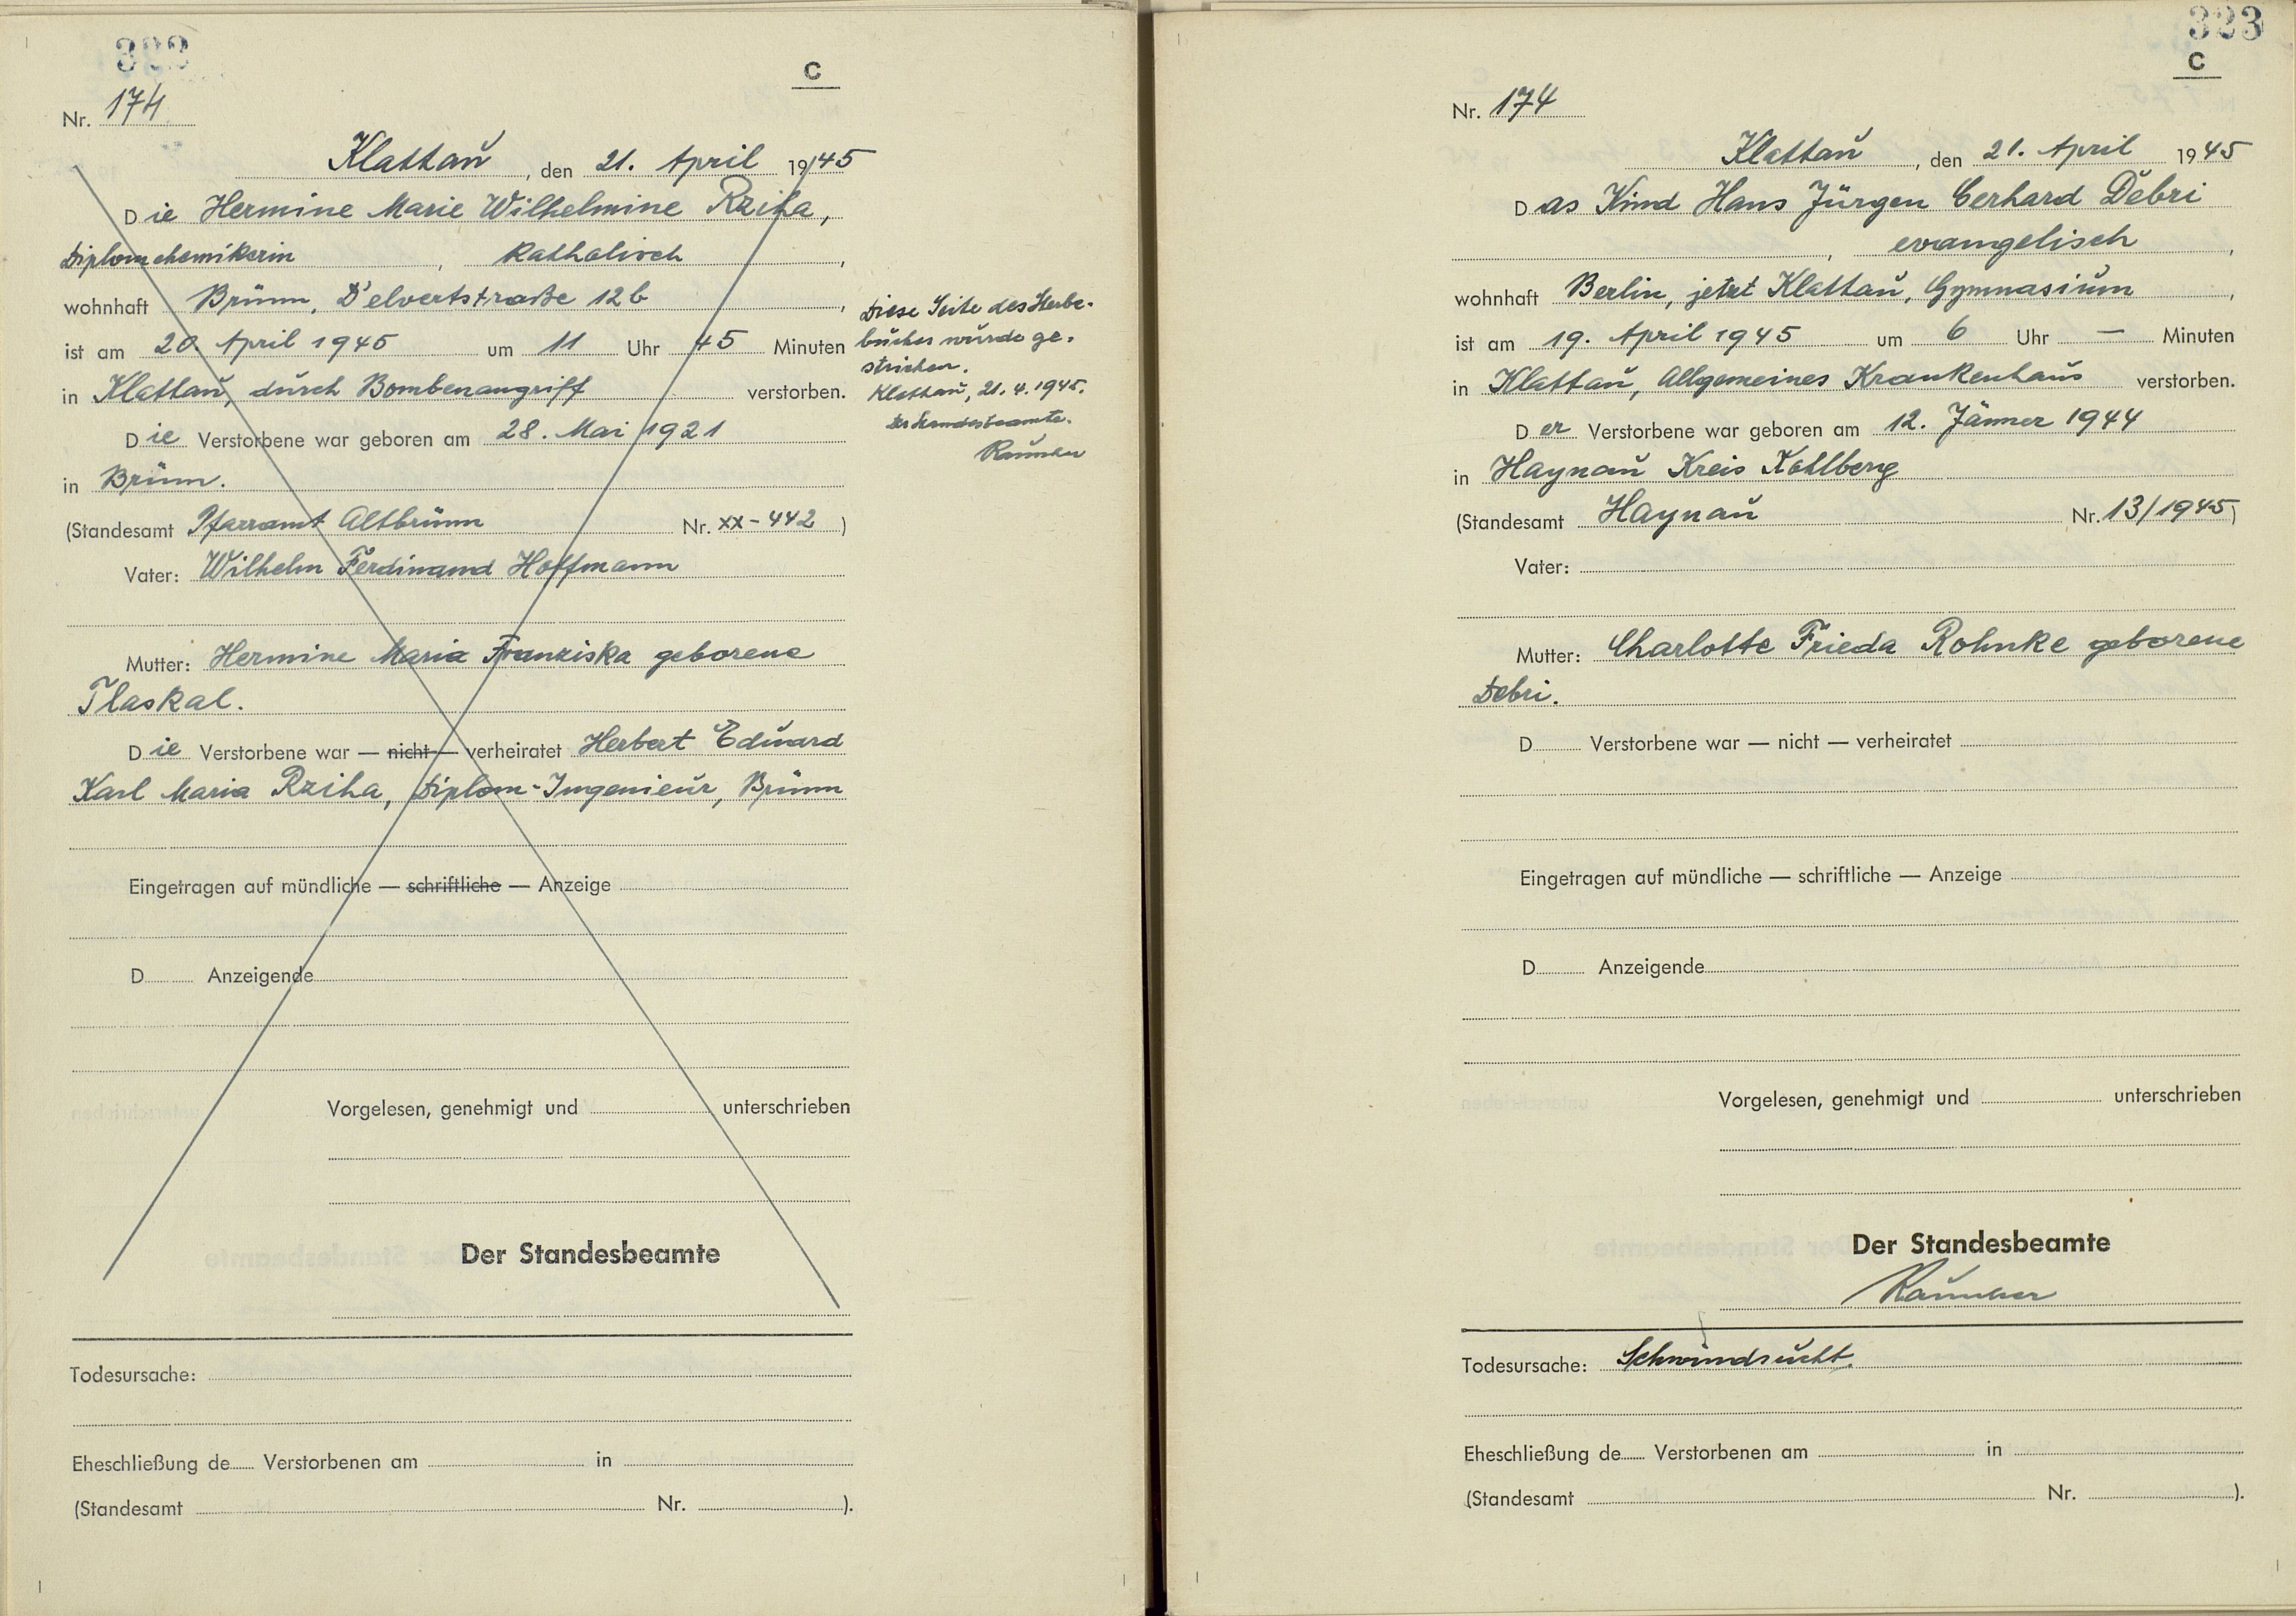 322
C
Nr. 174
Klattau, den 21. April 1945
Die Hermine Marie Wilhelmine Rziha,
Diplomchemikerin, katholisch,
wohnhaft Brünn, D'elvertstraße 12b,
ist am 20. April 1945 um 11 Uhr 45 Minuten
in Klattau, durch Bombenangriff verstorben.
Die Verstorbene war geboren am 28. Mai 1921
in Brünn.
(Standesamt Pfarramt Altbrünn Nr. XX-442)
Vater: Wilhelm Ferdinand Hoffmann
Mutter: Hermine Maria Franziska geborene
Tlaskal.
Die Verstorbene war — nicht — verheiratet Herbert Eduard
Karl Maria Rziha, Diplom-Ingenieur, Brünn
Eingetragen auf mündliche — schriftliche — Anzeige
D Anzeigende
Vorgelesen, genehmigt und unterschrieben
Der Standesbeamte
Todesursache:
Eheschließung de Verstorbenen am in
(Standesamt Nr. ).
Diese Seite des Sterbe-
buches wurde ge-
strichen.
Klattau, 21.4.1945.
Der Standesbeamte.
323
C
Nr. 174
Klattau, den 21. April 1945
Das Kind Hans Jürgen Gerhard Debri
, evangelisch,
wohnhaft Berlin, jetzt Klattau, Gymnasium,
ist am 19. April 1945 um 6 Uhr — Minuten
in Klattau, Allgemeines Krankenhaus verstorben.
Der Verstorbene war geboren am 12. Jänner 1944
in Haynau Kreis Kohlberg
(Standesamt Haynau Nr. 13/1945)
Vater:
Mutter: Charlotte Frieda Rohnke geborene
Debri.
D Verstorbene war — nicht — verheiratet
Eingetragen auf mündliche — schriftliche — Anzeige
D Anzeigende
Vorgelesen, genehmigt und unterschrieben
Der Standesbeamte
Todesursache: Schwindsucht.
Eheschließung de Verstorbenen am in
(Standesamt Nr. ).